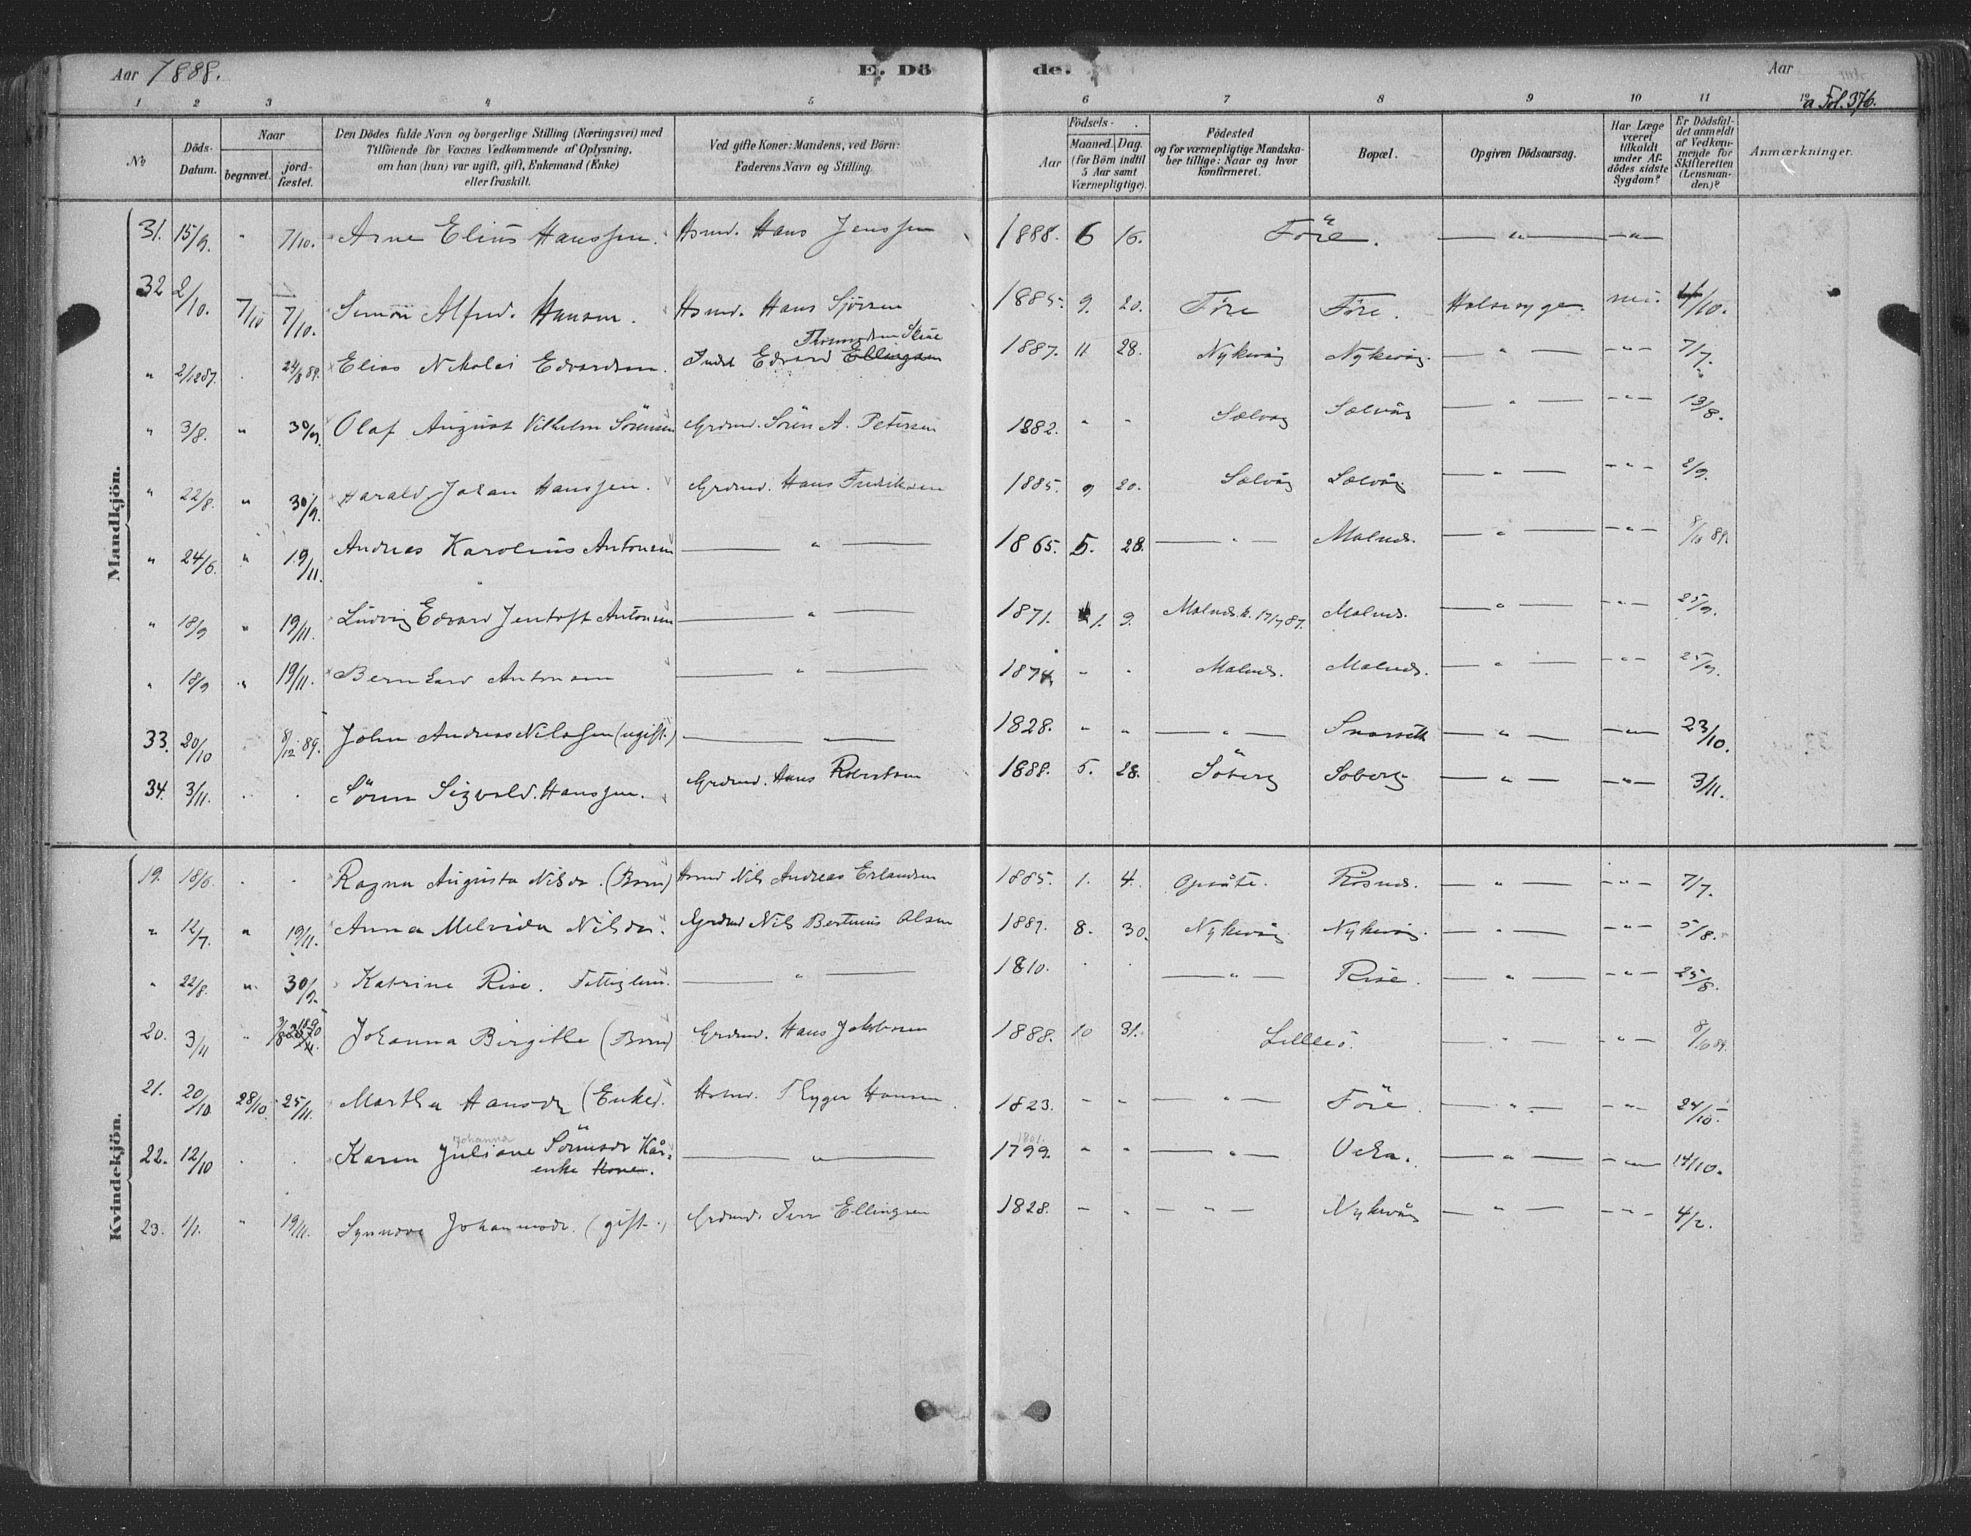 Aar 1888. E. Dö de. Aar
a Fol. 376.
1 2 3 4 5 6 7 8 9 10 11 12
No
Döds-Datum.
Naar
begravet.
jord-fæstet.
Den Dödes fulde Navn og borgerlige Stilling (Næringsvei) med
Tilföiende for Voxnes Vedkommende af Oplysning,
om han (hun) var ugift, gift, Enkemand (Enke)
eller fraskilt.
Ved gifte Koner: Mandens, ved Börn:
Faderens Navn og Stilling.
Födsels-
Aar
Maaned. Dag.
(for Börn indtil
5 Aar samt
Værnepligtige).
Födested
og for værnepligtige Mandska-
ber tillige: Naar og hvor
konfirmeret.
Bopæl.
Opgiven Dödsaarsag.
Har Læge
været
tilkaldt
under Af-
dödes sidste
Sygdom?
Er Dödsfal-
det anmeldt
af Vedkom-
mende for
Skifteretten
(Lensman-
den)?
Anmærkninger.
Mandkjön.
31. 15/9. " 7/10. Arne Elius Hanssen. Hsmd. Hans Jenssen 1888. 6 16. Före. — " — — " —
32 2/10. 7/10 7/10. Simon Alfred. Hansen. Hsmd. Hans Sjörsen 1885. 9. 20. Före Före. Halssyge nei. /10.
" 2/12 87. 24/3 89. Elias Nikolai Edvardsen. Indst Edvard Ellingsen 1887. 11 28. Nykvåg Nykvåg. — " — — " — 7/7.
" 3/8. " 30/9. Olaf August Vilhelm Sörensen Grdmd. Sören A. Petersen 1882. " " Sælvåg Sælvåg — " — — " — 13/8.
" 22/8. " 30/9. Harald Johan Hanssen. Grdmd. Hans Fredriksen 1885. 9 20. Sælvåg Sælvåg. — " — — " — 2/9.
" 24/6. " 19/11. Andreas Karolius Antonsen — " — 1865. 5. 28. — " — Malnes. — " — — " — 8/10 89.
" 18/9 " 19/11. Ludvig Edvard Jentoft Antonsen — " — 1871. 1. 9. Malnes. k. 17/7 87. Malnes. — " — — " — 25/9.
" 18/9 " 19/11. Bernhard Antonsen — " — 1874. " " Malnes. Malnes. — " — — " — 25/9.
33. 20/10 " 8/12 89. John Andreas Nilssen (ugift.) — " — 1828. " " — " — Snarset — " — — " — 23/10.
34. 3/11. " " Sören Sigvald. Hanssen. Grdmd. Hans Robertsen 1888. 5. 28. Söberg Söberg — " — — " — 3/11.
Kvindekjön.
19. 18/6. " " Ragna Augusta Nilsdr. (Barn) Hsmd Nils Andreas Erlandsen 1885. 1. 4. Opsåte. Røsnes. — " — — " — 7/7.
" 12/7. " 19/11. Anna Melvida Nilsdr. Grdmd Nils Bertinus Olsen 1887. 8. 30. Nykvåg Nykvåg. — " — — " — 5/8.
" 22/8. " 30/9. Katrine Rise. Fattiglem. — " — 1810. " " — " — Rise. — " — — " — 25/8.
20. 3/11 " Johanna Birgitte (Barn) Grdmd. Hans Jakobsen 1888. 10 31. Lilleö. — " — — " — 8/10 89.
21. 20/10 28/10. 25/11. Martha Hansdr (Enke). Hsmd. Thyger Hansen 1823. " " — " — Före. — " — — " — 24/10.
22. 12/10 " " Karen Juliane Johanna Sörensdr Kår-enke Kone. — " — 1799. 1801. " " — " — Vetn. — " — — " — 14/10.
23. 1/1. " 19/11. Synnöve Johannesdr. (gift.) Grdmd. Iver Ellingsen 1828. " " — " — Nykvåg — " — — " — 4/2.